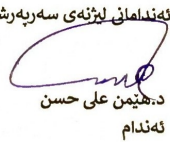 ئەندامانی لیژنەی سەرپەرش
د.هێمن علی حسن
ئەندام